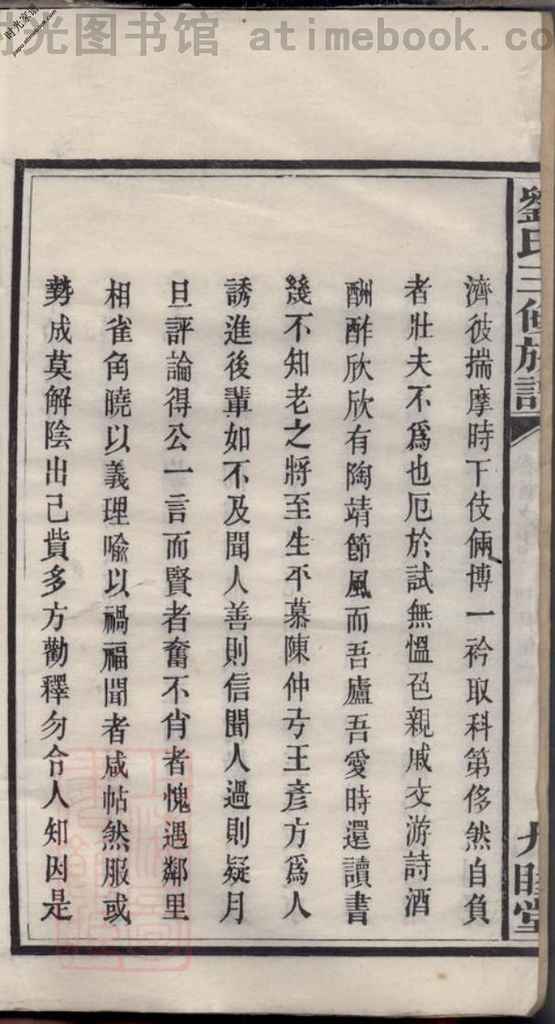 时光图书馆 atimebook.com
劉氏三修族譜
濟彼揣摩時下伎倆博一衿取科第侈然自負
者壯夫不爲也厄於試無慍色親戚交游詩酒
酬酢欣欣有陶靖節風而吾廬吾愛時還讀書
幾不知老之將至生平慕陳仲弓王彥方爲人
誘進後輩如不及聞人善則信聞人過則疑月
旦評論得公一言而賢者奮不肖者愧遇鄰里
相雀角曉以義理喩以禍福聞者咸帖然服或
勢成莫解陰出己貲多方勸釋勿令人知因是
睦堂